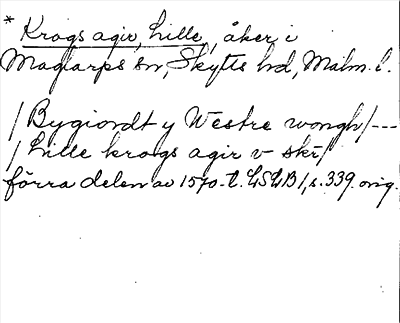 * Krogs agir, Lille, åker i
Maglarps sn, Skytts hd, Malm. l.
/ Bygiordt y Westre wongh / ---
/ Lille krogs agir v skr/
förra delen av 1570-t. LSLB 1, s. 339. orig.